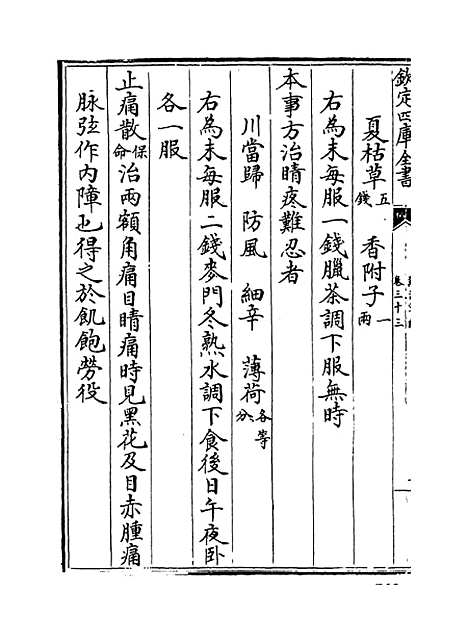 欽定四庫全書
卷三十三
夏枯草五錢 香附子一兩
右為末每服一錢臘茶調下服無時
本事方治睛疼難忍者
川當歸 防風 細辛 薄荷各等分
右為末每服二錢麥門冬熟水調下食後日午夜卧
各一服
止痛散保命治兩額角痛目睛痛時見黑花及目赤腫痛
脉弦作内障也得之於飢飽勞役